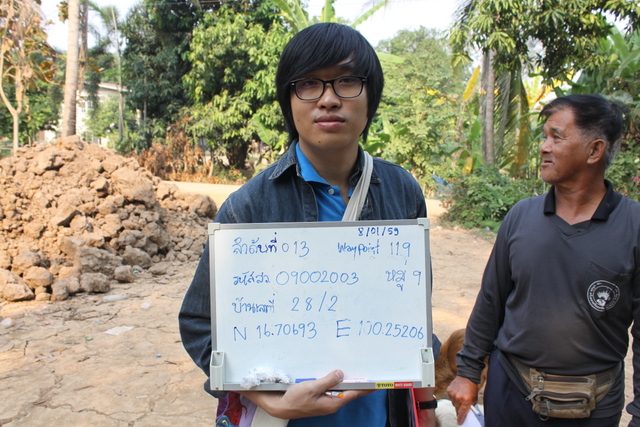 8/01/59
ลำดับที่ 013 Waypoint 119
รหัสสว 09002003 หมู่ 9
บ้านเลขที่ 28/2
N 16.70693 E 100.25206